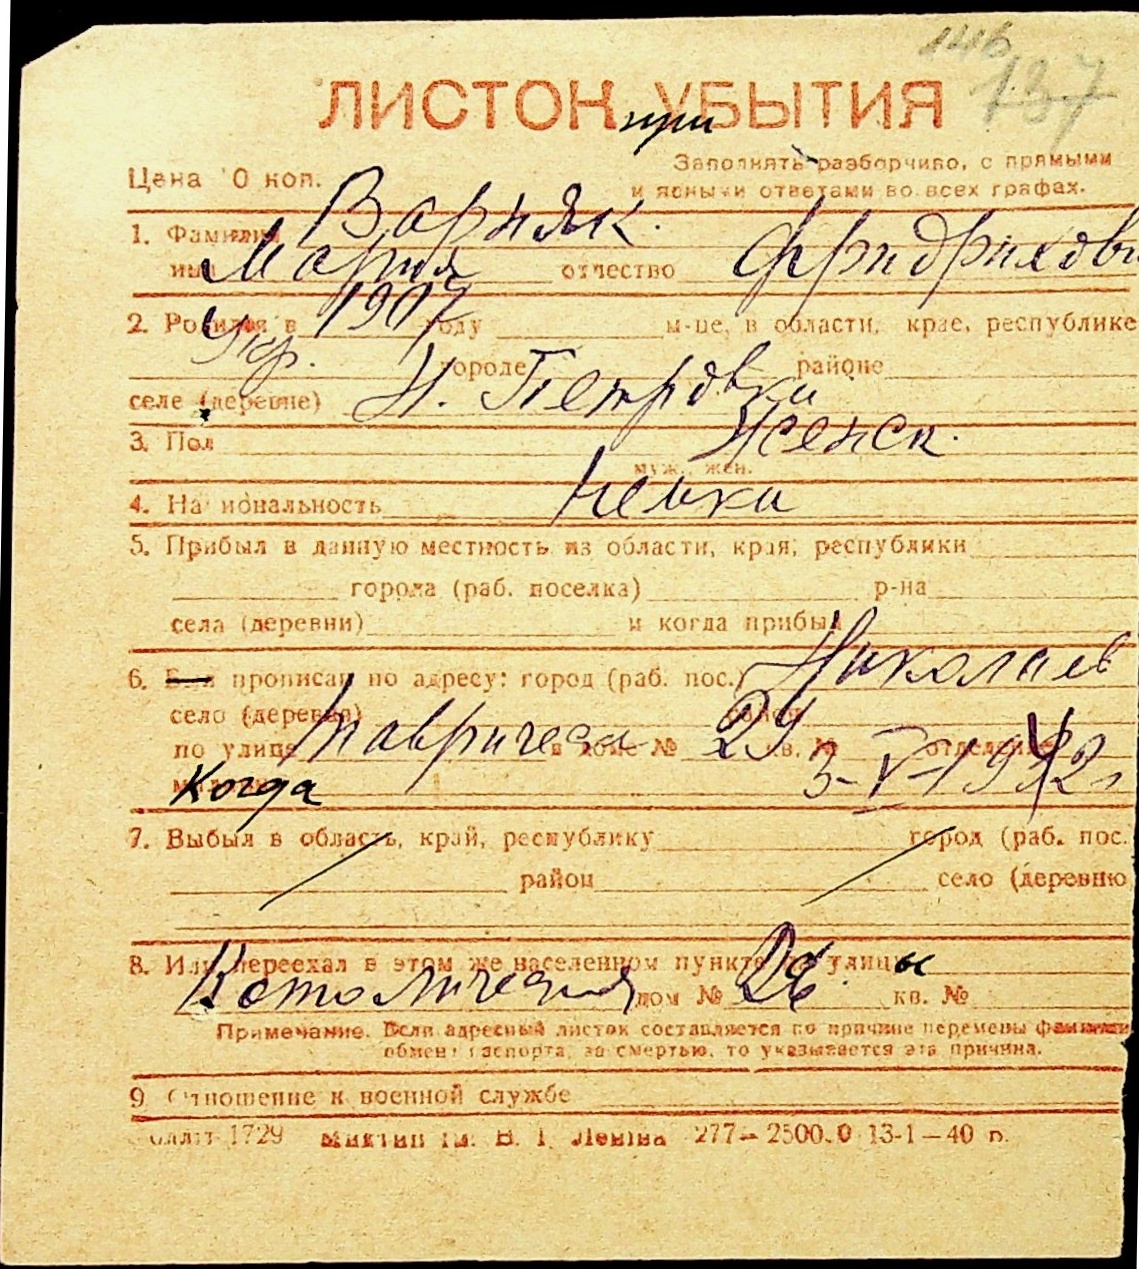 146
137
ЛИСТОК УБЫТИЯ
при
Цена 10 коп.
Заполнять разборчиво, с прямыми
и ясными ответами во всех графах.
1. Фамилия Варняк.
имя Мария отчество Фридрихови
2. Родился в 1907 году м-це, в области, крае, республике
Укр. городе районе
селе (деревне) Н. Петровка
3. Пол Женск.
муж., жен.
4. Национальность Немка
5. Прибыл в данную местность из области, края, республики
города (раб. поселка) р-на
села (деревни) и когда прибыл
6. Был прописан по адресу: город (раб. пос.) Николаев
село (деревня) район
по улице Тавричеса дом № 29 кв. № отделение
милиции Когда 3-V-1942 г
7. Выбыл в область, край, республику город (раб. пос.
район село (деревню
8. Или переехал в этом же населенном пункте по улицы
Католическая дом № 26. кв. №
Примечание. Если адресный листок составляется по причине перемены фамилии
обмен паспорта, за смертью, то указывается эта причина.
9 Отношение к военной службе
1729 ім. В. І. Леніна 277— 2500.0 13-1—40 р.